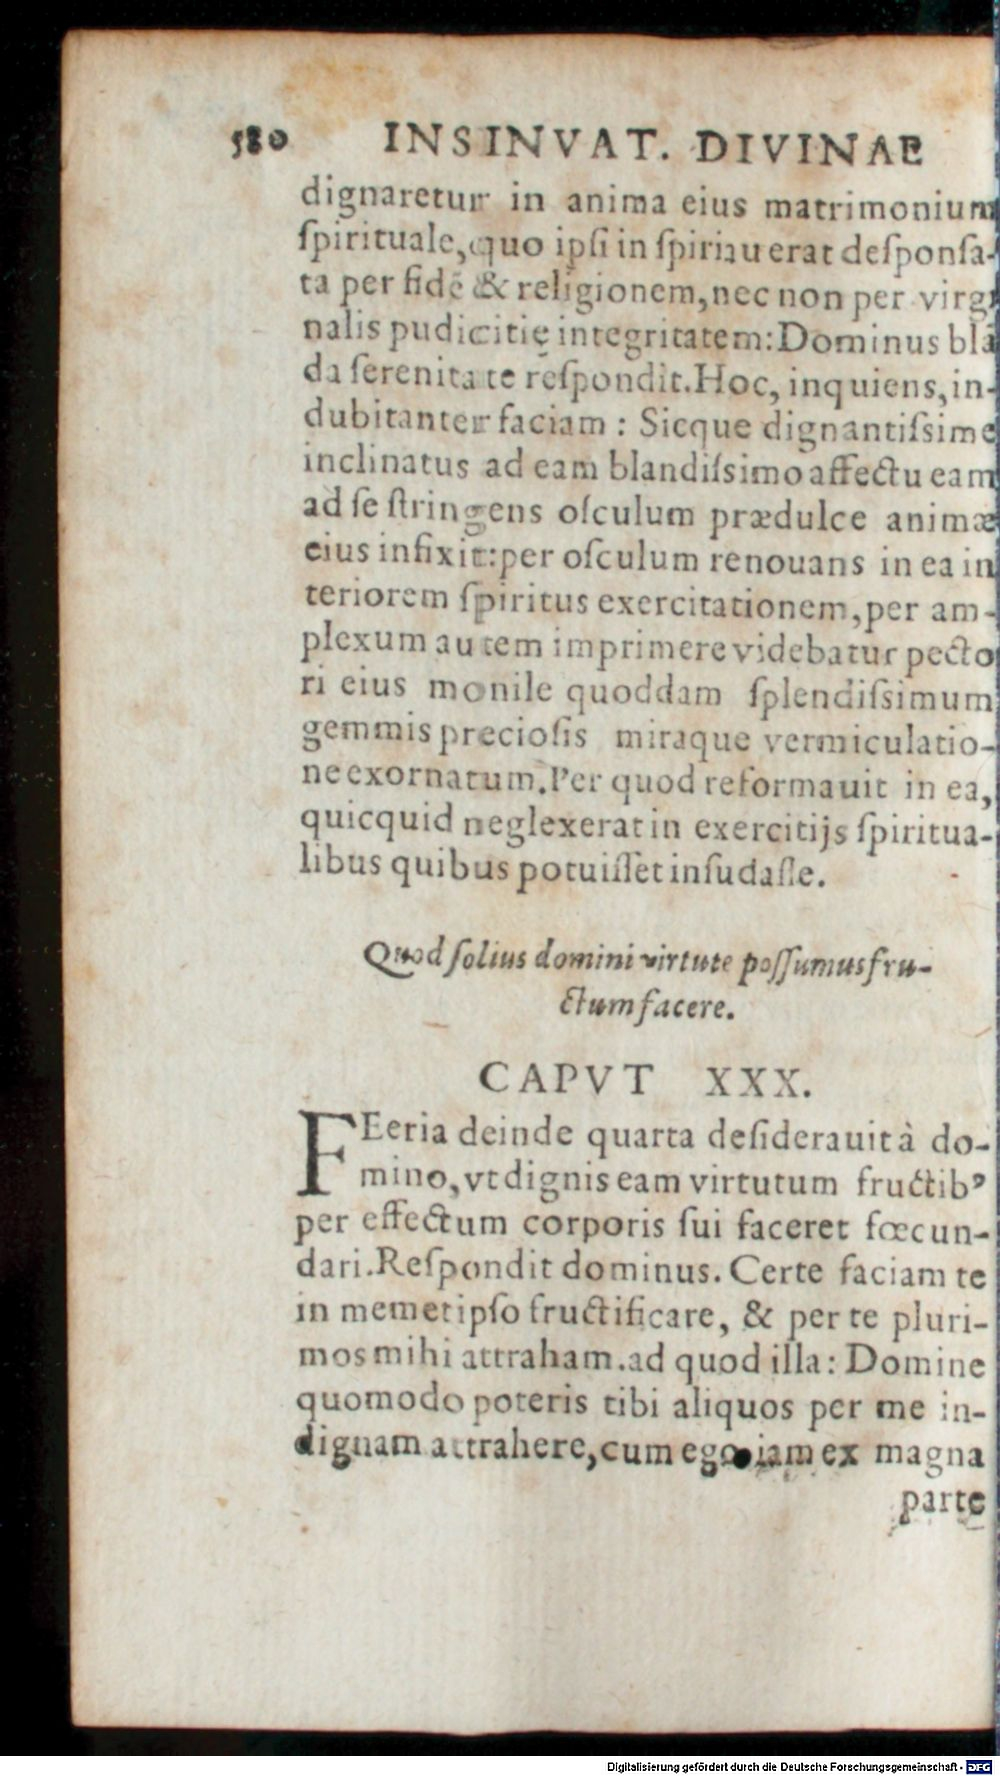 580 INSINVAT. DIVINAE
dignaretur in anima eius matrimonium
ſpirituale, quo ipſi in ſpiritu erat deſponſa-
ta per fidē & religionem, nec non per virgi
nalis pudicitię integritatem: Dominus blā
da ſerenitate reſpondit. Hoc, inquiens, in-
dubitanter faciam : Sicque dignantiſsime
inclinatus ad eam blandiſsimo affectu eam
ad ſe ſtringens oſculum prædulce animæ
eius infixit: per oſculum renouans in ea in
teriorem ſpiritus exercitationem, per am-
plexum autem imprimere videbatur pecto
ri eius monile quoddam ſplendiſsimum
gemmis precioſis miraque vermiculatio-
ne exornatum. Per quod reformauit in ea,
quicquid neglexerat in exercitijs ſpiritua-
libus quibus potuiſſet inſudaſſe.
Quod ſolius domini virtute poſſumus fru-
ctum facere.
CAPVT XXX.
FEeria deinde quarta deſiderauit à do-
mino, vt dignis eam virtutum fructibꝰ
per effectum corporis ſui faceret fœcun-
dari. Reſpondit dominus. Certe faciam te
in memetipſo fructificare, & per te pluri-
mos mihi attraham. ad quod illa: Domine
quomodo poteris tibi aliquos per me in-
dignam attrahere, cum ego iam ex magna
parte
Digitalisierung gefördert durch die Deutsche Forschungsgemeinschaft - DFG